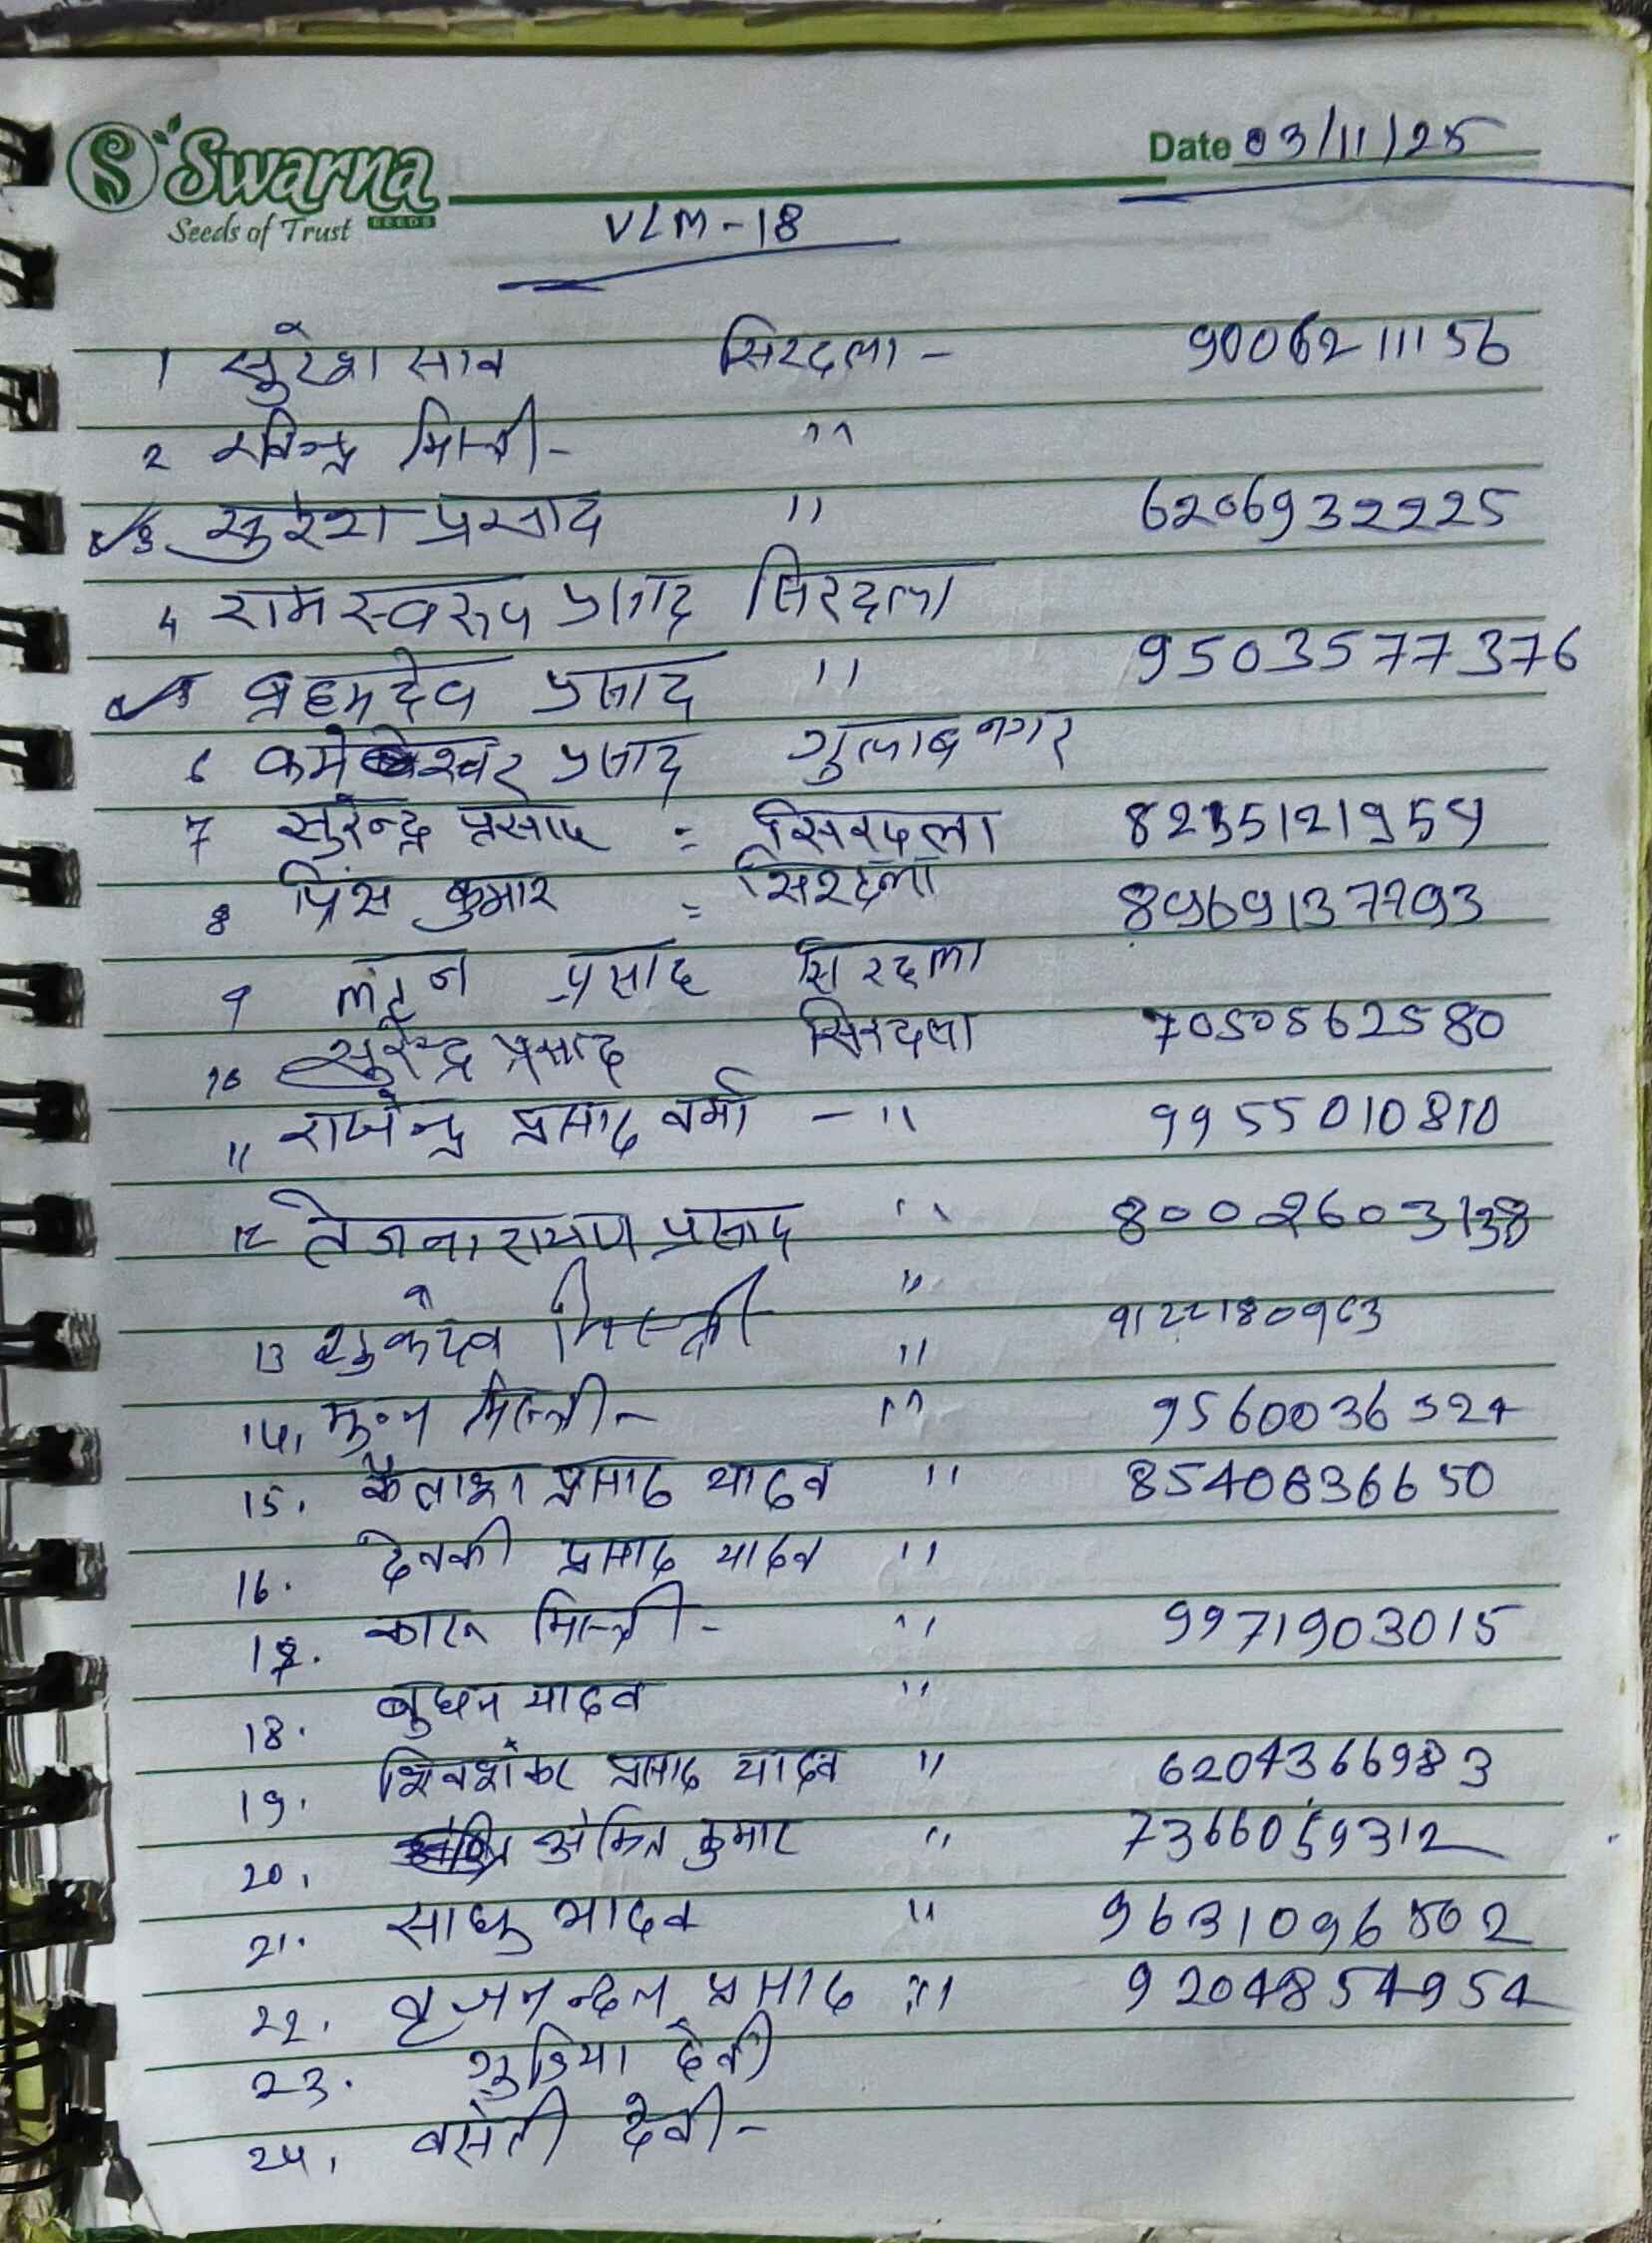 Swarna
SEEDS
Seeds of Trust
Date 03/11/25
VLM-18
1 सुरेश साव सिरदला - 9006211156
2 रविन्द्र मिस्त्री - "
3 सुरेश प्रसाद " 6206932225
4 रामस्वरूप प्रसाद सिरदला
5 ब्रहमदेव प्रसाद " 9503577376
6 कमेश्वर प्रसाद गुलाबनगर
7 सुरेन्द्र प्रसाद = सिरदला 8235121959
8 प्रिंस कुमार = सिरदला 8969137793
9 प्रसाद सिरदला
10 सुरेन्द्र प्रसाद सिरदला 7050562580
11 राजेन्द्र प्रसाद वर्मा - " 9955010810
12 तेजनारायण प्रसाद "
13 शुकदेव मिस्त्री "
"
14. मिस्त्री - "
15. कैलाश प्रसाद यादव " 8540836650
16. देवकी प्रसाद यादव "
17. कारू मिस्त्री - " 9971903015
18. बुधन यादव "
19. शिवशंकर प्रसाद यादव " 6204366983
20. अमित कुमार " 7366059312
21. साधु यादव "
22. बृजनन्दन प्रसाद " 9204854954
23. गुडिया देवी
24. बसंती देवी -